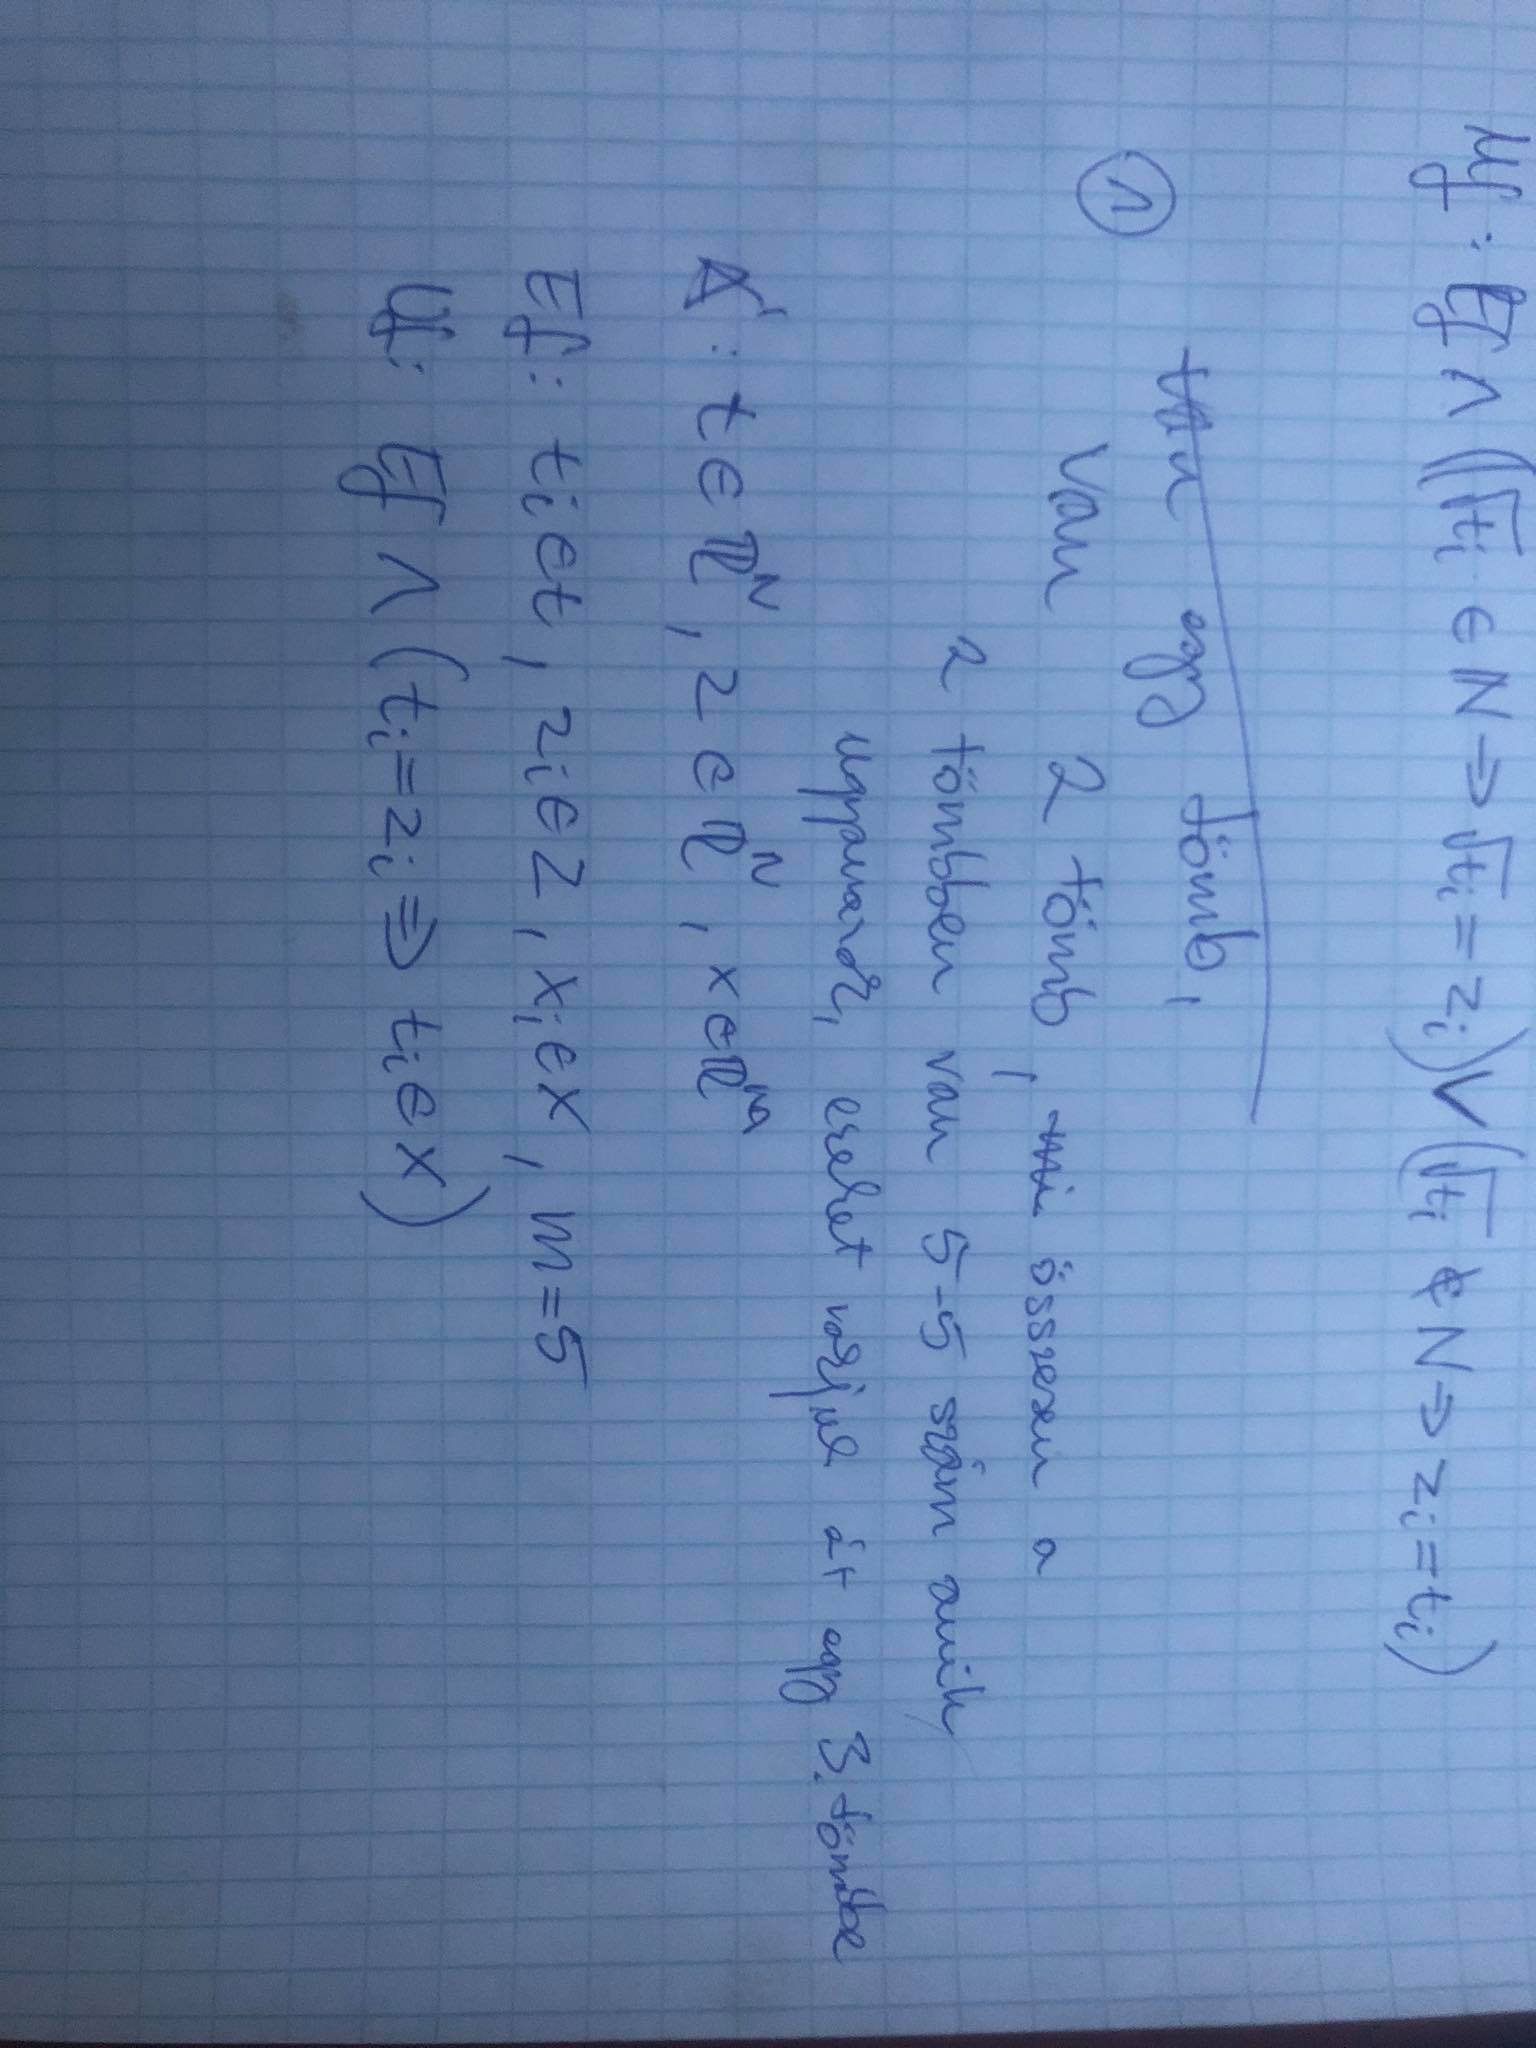 Uf: Ef ∧ ((√ti ∈ N ⇒ √ti = zi) ∨ (√ti ∉ N ⇒ zi = ti)
van egy tömb,
① van 2 tömb, mi összesen a
2 tömbben van 5-5 szám amik
ugyanazok, ezeket rakjuk át egy 3. tömbbe
Á: t ∈ ℝᴺ, z ∈ ℝᴺ, x ∈ ℝᵐ
Ef: ti ∈ t, zi ∈ z, xi ∈ x, m = 5
Uf: Ef ∧ (ti = zi ⇒ ti ∈ x)